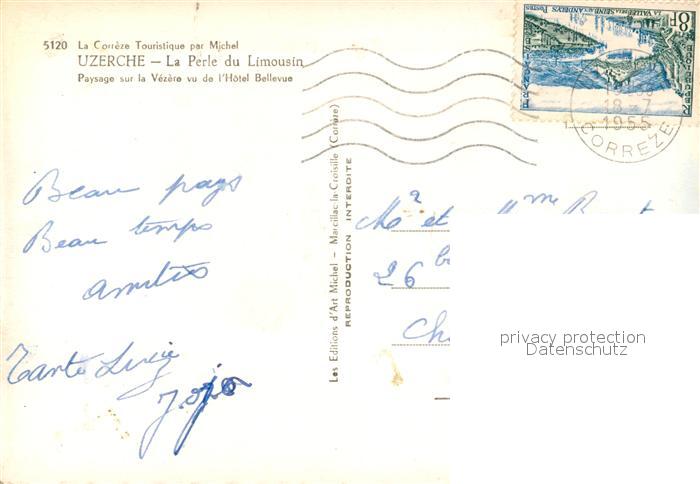 5120 La Corrèze Touristique par Michel
UZERCHE — La Perle du Limousin
Paysage sur la Vézère vu de l'Hôtel Bellevue
Beau pays
Beau temps
amitiés
Tante Lucie
Jojo
Les Editions d'Art Michel - Marcillac-la-Croisille (Corrèze)
REPRODUCTION INTERDITE
8F
LA VALLÉE DE LA SEINE AUX ANDELYS POSTES
18-7
1955
CORREZE
et Mme
26 b
Ch
privacy protection
Datenschutz